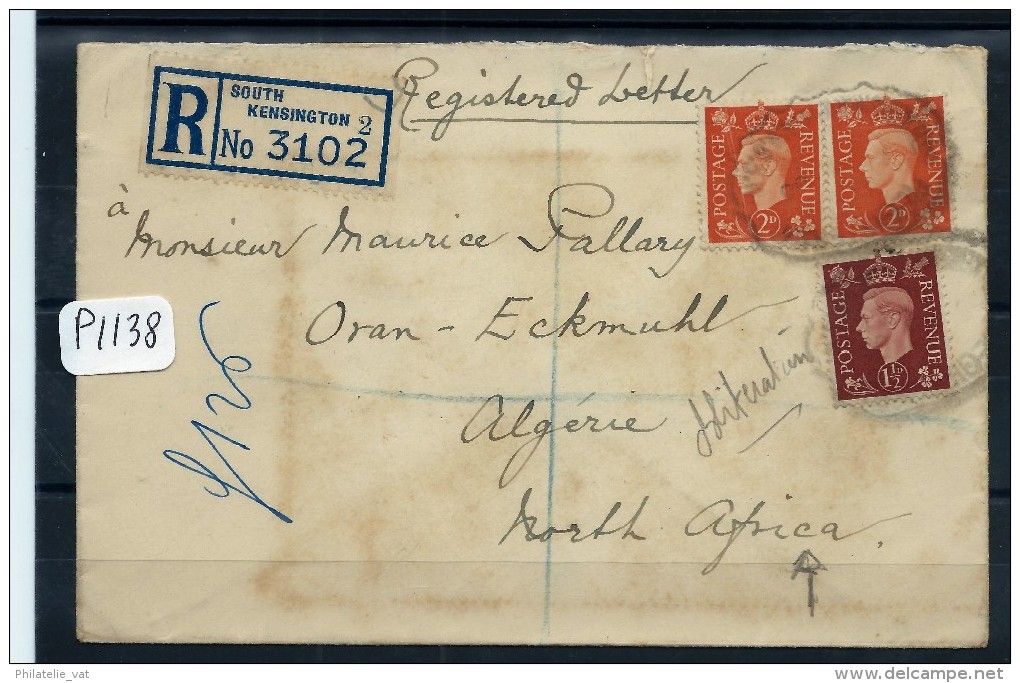 Registered Letter
R
SOUTH
KENSINGTON 2
No 3102
POSTAGE REVENUE
2D
POSTAGE REVENUE
2D
POSTAGE REVENUE
1½D
à
Monsieur Maurice Pallary
Oran - Eckmuhl
Algérie
North Africa.
P1138
Philatelie_vat
www.delcampe.net